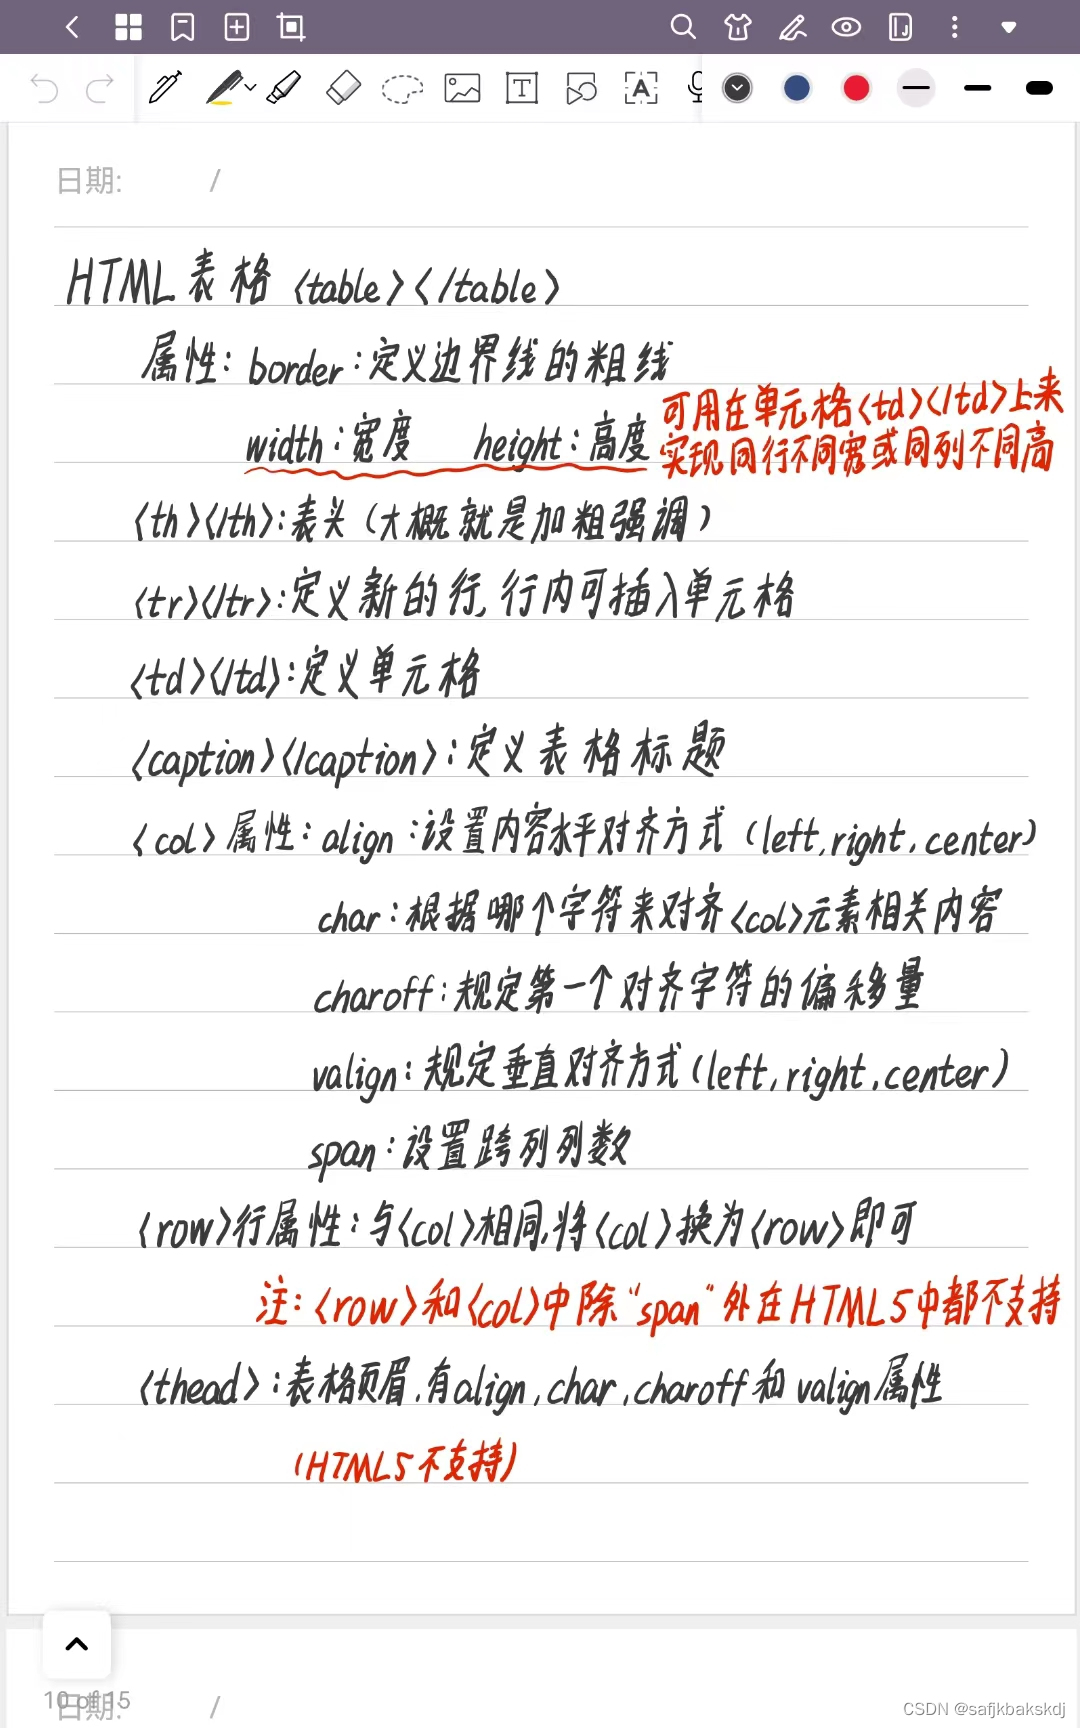 日期: /
HTML 表格 <table></table>
属性: border:定义边界线的粗线
width:宽度 height:高度
可用在单元格<td></td>上来
实现同行不同宽或同列不同高
<th></th>:表头(大概就是加粗强调)
<tr></tr>:定义新的行,行内可插入单元格
<td></td>:定义单元格
<caption></caption>:定义表格标题
<col>属性: align:设置内容水平对齐方式(left,right,center)
char:根据哪个字符来对齐<col>元素相关内容
charoff:规定第一个对齐字符的偏移量
valign:规定垂直对齐方式(left,right,center)
span:设置跨列列数
<row>行属性:与<col>相同,将<col>换为<row>即可
注:<row>和<col>中除"span"外在HTML5中都不支持
<thead>:表格页眉,有align,char,charoff和valign属性
(HTML5不支持)
10 of 15
日期: /
CSDN @safjkbakskdj